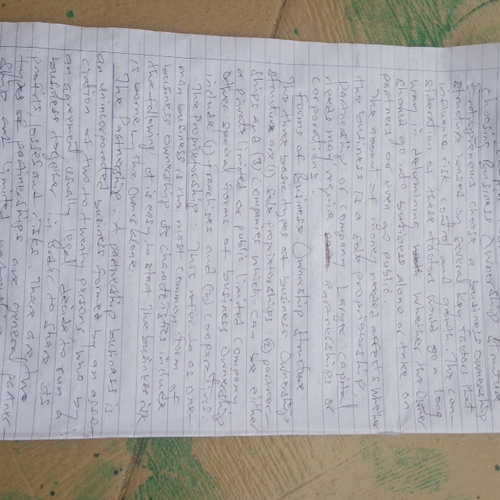 Choosing Business Ownership Structure
Entrepreneurs choose a business ownership
structure based on several key factors that
influence risk, control and growth. The con
sideration as these factors would go a long
way in determining whether the Owner
should go into business alone or take on
partners or even go public.
The amount of money needed affects whether
the business is a sole proprietorship,
Partnership or company. Larger capital
needs may require partnerships or
corporations.
Forms of Business Ownership Structure
The three basic types of business Ownership
structure are (1) sole proprietorships (2) partner
ships and (3) companies which can be either
a private limited or public limited company
Other special forms of business Ownership
include (1) franchises and (2) cooperatives.
Sole proprietorship: This refer to as one-
man business is the most common form of
business ownership. Its characteristics include
the following: it is easy to start. The business risk
is borne by the Owner alone.
The Partnership: A partnership business is
an unincorporated business formed by an asso
ciation of two to twenty persons who by
an agreement usually a deed decide to run a
business together in order to share its
profits, losses and risks. There are two
types of partnerships are general partner
ship and limited partnership